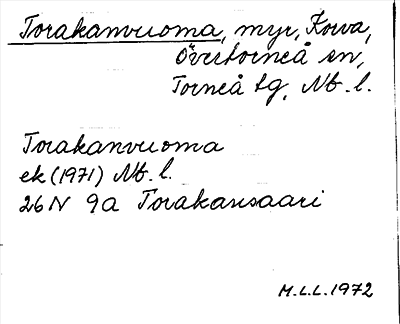 Torakanvuoma, myr, Korva,
Övertorneå sn,
Torneå tg, Nb. l.
Torakanvuoma
ek (1971) Nb. l.
26N 9a Torakansaari
M.L.L. 1972